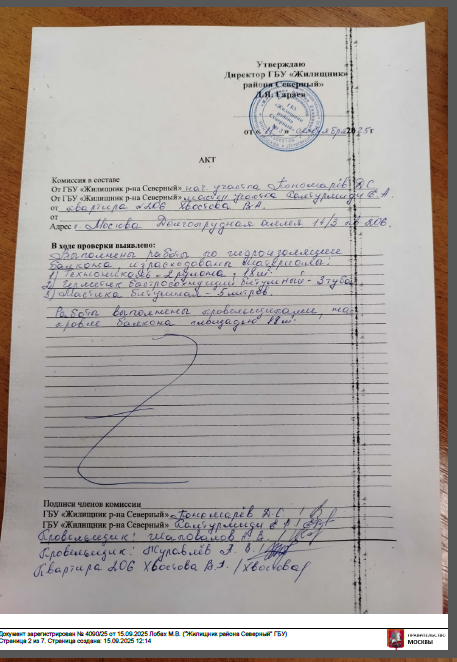 Утверждаю
Директор ГБУ «Жилищник»
района Северный»
Д.Я. Гараев
от « 11 » сентября 2025г
АКТ
Комиссия в составе
От ГБУ «Жилищник р-на Северный» нач. участка Пономарёв Д.С.
От ГБУ «Жилищник р-на Северный» мастер участка С.А.
от квартира 206 Хвостова В.А.
от
Адрес г. Москва Долгопрудная аллея 14/3 кв 206.
В ходе проверки выявлено:
Выполнены работы по гидроизоляции
балкона израсходованы материалы:
1) Технониколь - 2 рулона, 18м²
2) Герметик быстросохнущий битумный - 3 тубы
3) Мастика битумная - 5 литров.
Работы выполнены кровельщиками, на
кровле балкона площадью 18м².
Подписи членов комиссии
ГБУ «Жилищник р-на Северный» Пономарёв Д.С.
ГБУ «Жилищник р-на Северный»
Кровельщик: Шаповалов А.В.
Кровельщик: Журавлёв В.
Квартира 206 Хвостова В.А. /Хвостова/
Документ зарегистрирован № 4090/25 от 15.09.2025 Лобах М.В. ("Жилищник района Северный" ГБУ)
Страница 2 из 7. Страница создана: 15.09.2025 12:14
ПРАВИТЕЛЬСТВО
МОСКВЫ